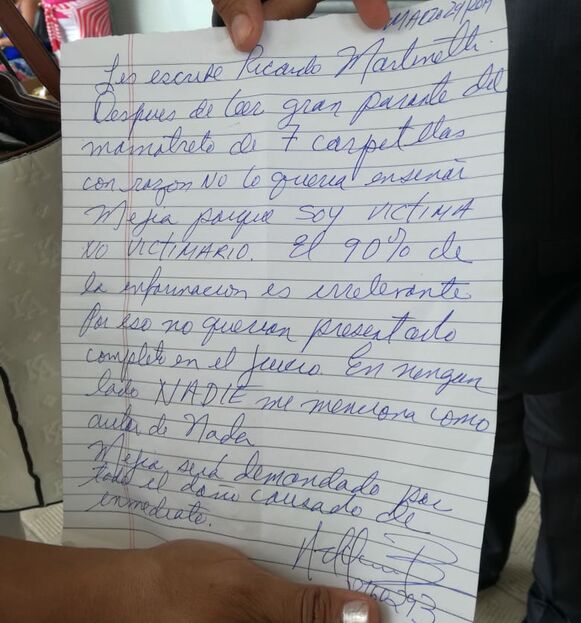 Les escribe Ricardo Martinelli.
Despues de leer gran parte del
mamotreto de 7 carpetillas
con razon NO lo queria enseñar
Mejia porque SOY VICTIMA
NO VICTIMARIO. El 90% de
la informacion es irrelevante
Por eso no querian presentarlo
completo en el juicio. En ningun
lado NADIE me menciona como
autor de Nada
Mejia será demandado por
todo el daño causado de
inmediato.